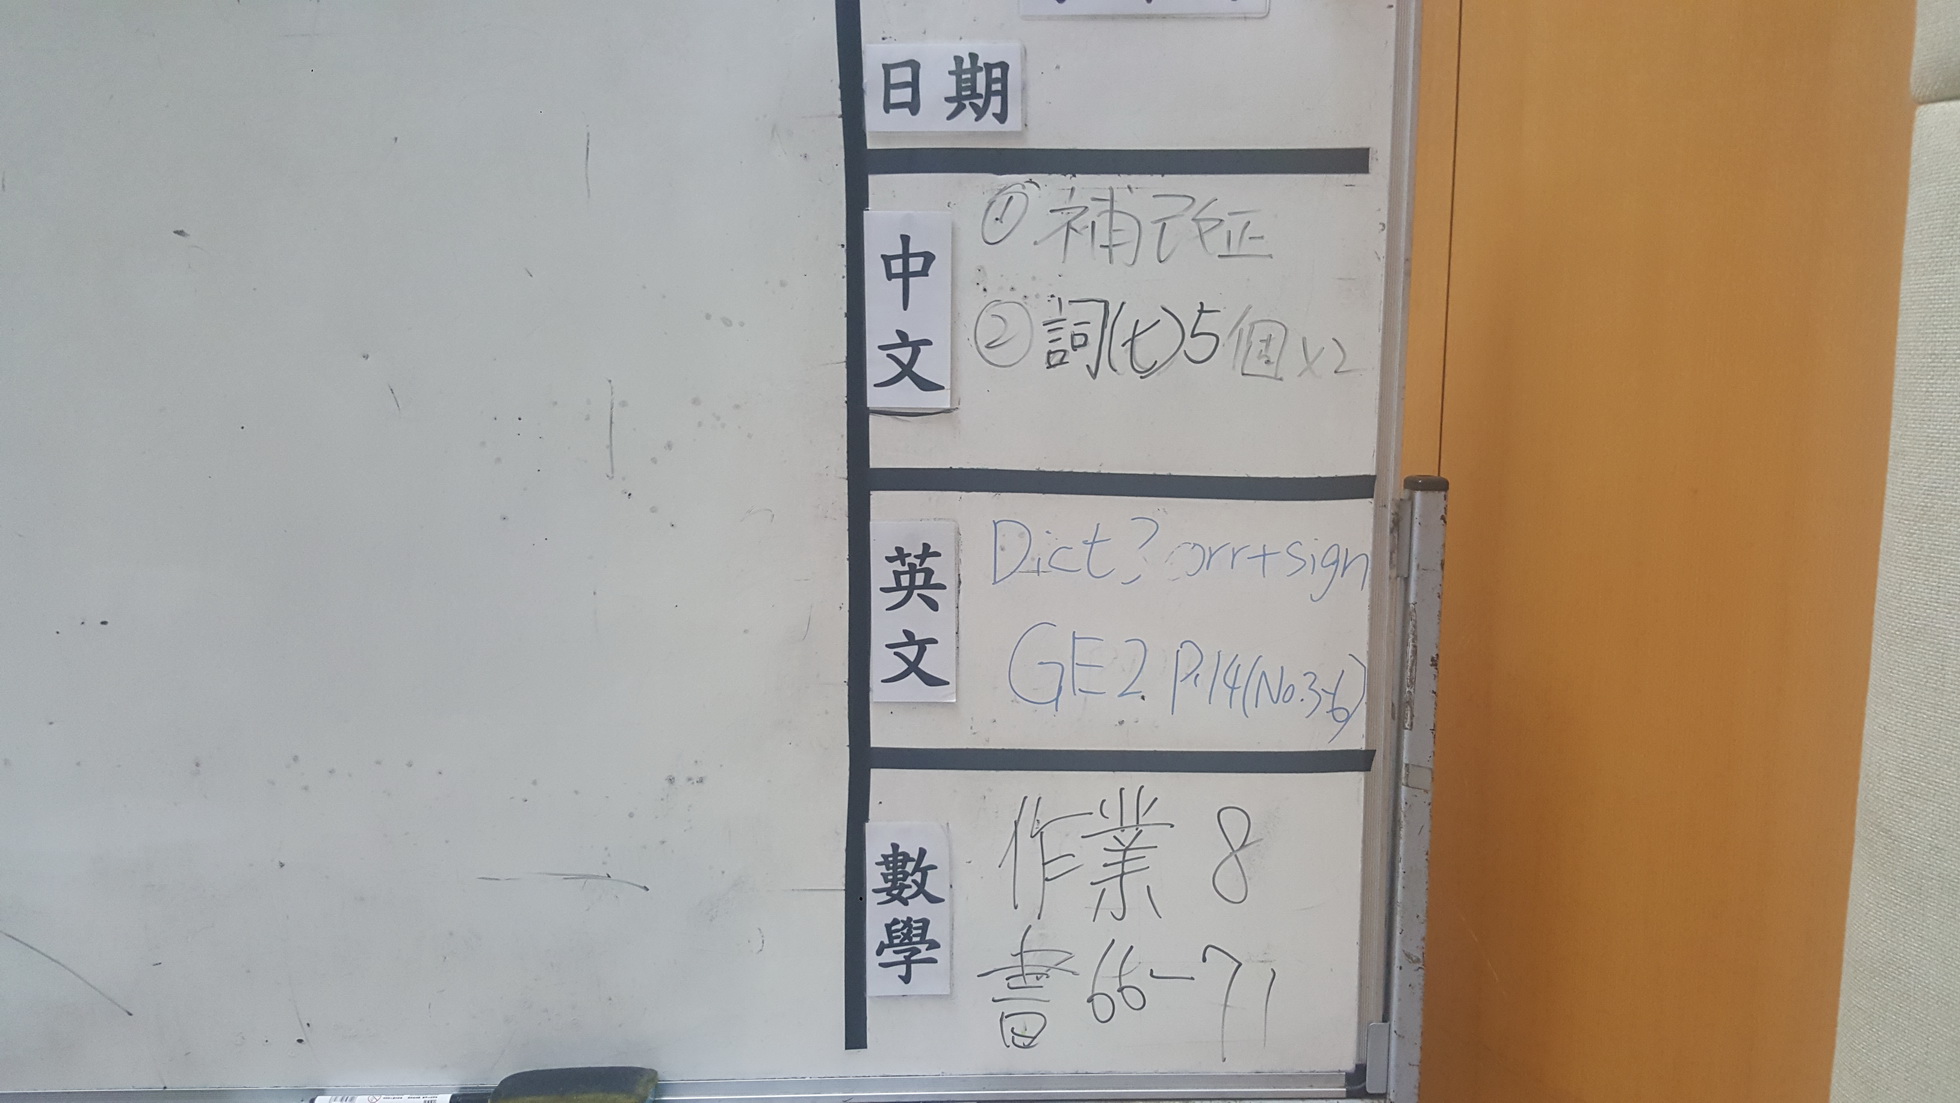 日期
中文
① 補改正
② 詞(七)5個x2
英文
Dict? orr+sign
GE2 P.14(No.3-6)
數學
作業 8
書 66-71